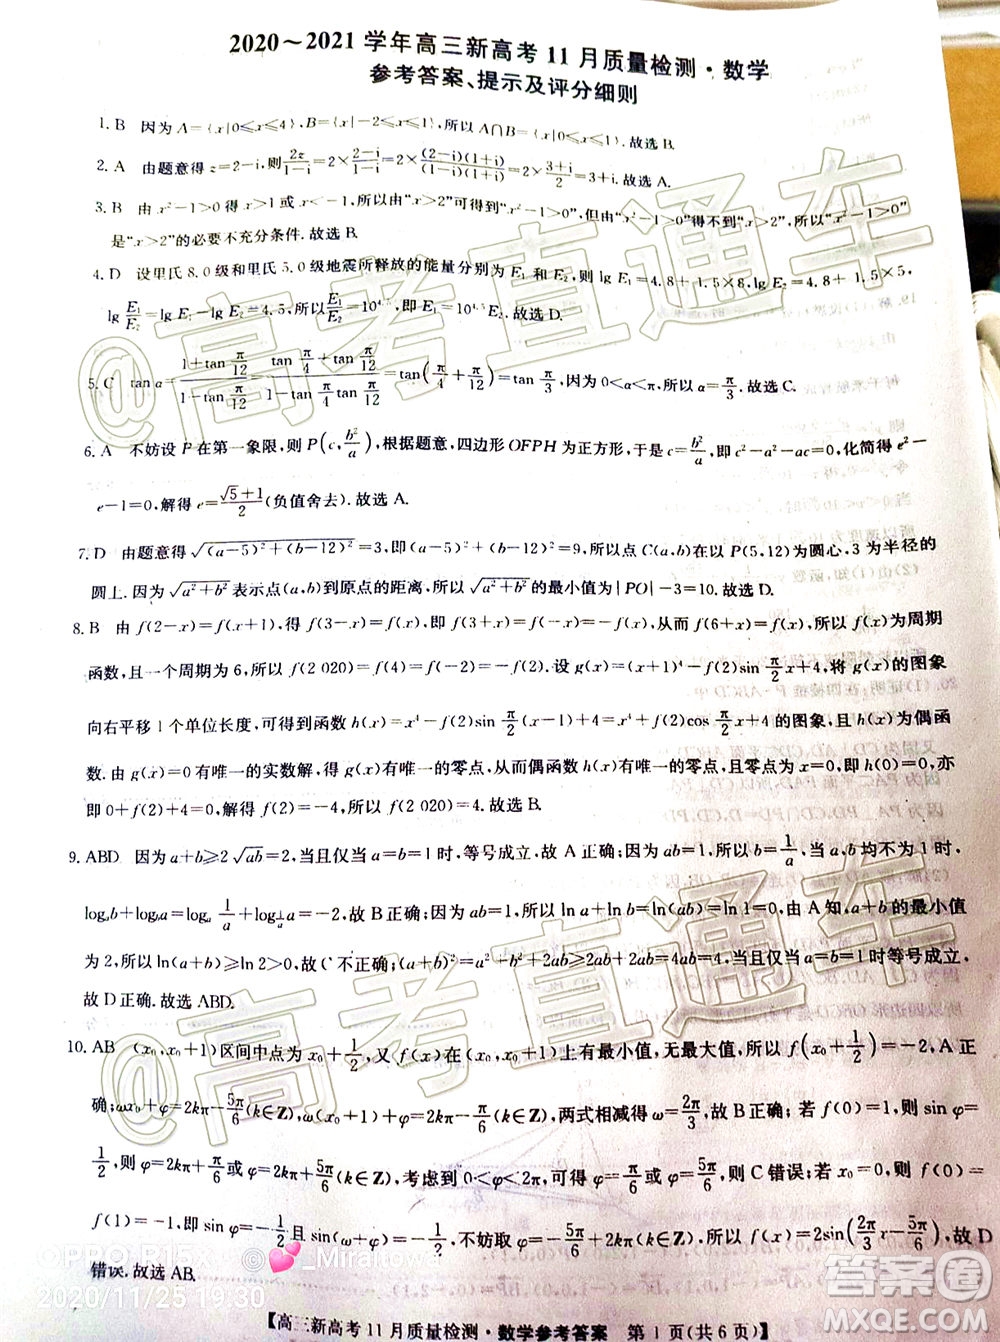 2020～2021学年高三新高考11月质量检测·数学
参考答案、提示及评分细则
1. B 因为A={x|0≤x≤4},B={x|-2≤x≤1},所以A∩B={x|0≤x≤1}.故选B.
2. A 由题意得z=2-i,则2z/(1-i)=2×(2-i)/(1-i)=2×(2-i)(1+i)/((1-i)(1+i))=2×(3+i)/2=3+i.故选A.
3. B 由x²-1>0得x>1或x<-1,因此“x>2”可得到“x²-1>0”,但由“x²-1>0”得不到“x>2”,所以“x²-1>0”
是“x>2”的必要不充分条件.故选B.
4. D 设里氏8.0级和里氏5.0级地震所释放的能量分别为E₁和E₂,则lg E₁=4.8+1.5×8,lg E₂=4.8+1.5×5,
lg E₁/E₂=lg E₁-lg E₂=4.5,所以E₁/E₂=10^4.5,即E₁=10^4.5E₂.故选D.
5. C tan α=(1+tan π/12)/(1-tan π/12)=(tan π/4+tan π/12)/(1-tan π/4 tan π/12)=tan(π/4+π/12)=tan π/3,因为0<α<π,所以α=π/3.故选C.
6. A 不妨设P在第一象限,则P(c,b²/a),根据题意,四边形OFPH为正方形,于是c=b²/a,即c²-a²-ac=0,化简得e²-
e-1=0,解得e=(√5+1)/2(负值舍去).故选A.
7. D 由题意得√((a-5)²+(b-12)²)=3,即(a-5)²+(b-12)²=9,所以点C(a,b)在以P(5,12)为圆心,3为半径的
圆上.因为√(a²+b²)表示点(a,b)到原点的距离,所以√(a²+b²)的最小值为|PO|-3=10.故选D.
8. B 由f(2-x)=f(x+1),得f(3-x)=f(x),即f(3+x)=f(-x)=-f(x),从而f(6+x)=f(x),所以f(x)为周期
函数,且一个周期为6,所以f(2 020)=f(4)=f(-1)=-f(1)=-f(2).设g(x)=(x+1)⁴-f(2)sin π/2 x+4,将g(x)的图象
向右平移1个单位长度,可得到函数h(x)=x⁴-f(2)sin[π/2(x-1)]+4=x⁴+f(2)cos π/2 x+4的图象,且h(x)为偶函
数.由g(x)=0有唯一的实数解,得g(x)有唯一的零点,从而偶函数h(x)有唯一的零点,且零点为x=0,即h(0)=0,亦
即0+f(2)+4=0,解得f(2)=-4,所以f(2 020)=4.故选B.
9. ABD 因为a+b≥2√ab=2,当且仅当a=b=1时,等号成立,故A正确;因为ab=1,所以b=1/a,当a,b均不为1时,
logₐb+log_b a=logₐ 1/a+log_{1/a} a=-2,故B正确;因为ab=1,所以ln a+ln b=ln(ab)=ln 1=0,由A知,a+b的最小值
为2,所以ln(a+b)≥ln 2>0,故C不正确;(a+b)²=a²+b²+2ab≥2ab+2ab=4ab=4,当且仅当a=b=1时等号成立,
故D正确.故选ABD.
10. AB (x₀,x₀+1)区间中点为x₀+1/2,又f(x)在(x₀,x₀+1)上有最小值,无最大值,所以f(x₀+1/2)=-2,A正
确;ωx₀+φ=2kπ-5π/6(k∈Z),ω(x₀+1)+φ=2kπ-π/6(k∈Z),两式相减得ω=2π/3,故B正确;若f(0)=1,则sin φ=
1/2,则φ=2kπ+π/6或φ=2kπ+5π/6(k∈Z),考虑到0<φ<2π,则φ=π/6或φ=5π/6,则C错误;若x₀=0,则f(0)=
f(1)=-1,即sin φ=-1/2且sin(ω+φ)=-1/2,不妨取φ=-5π/6,ω=2π/3,满足条件,所以f(x)=2sin(2π/3 x-5π/6),故D
错误.故选AB.
【高三新高考11月质量检测·数学参考答案 第1页(共6页)】
@高考直通车
@高考直通车
OPPO R15x @💕_Miraitowa
2020/11/25 19:30
答案圈
MXQE.COM